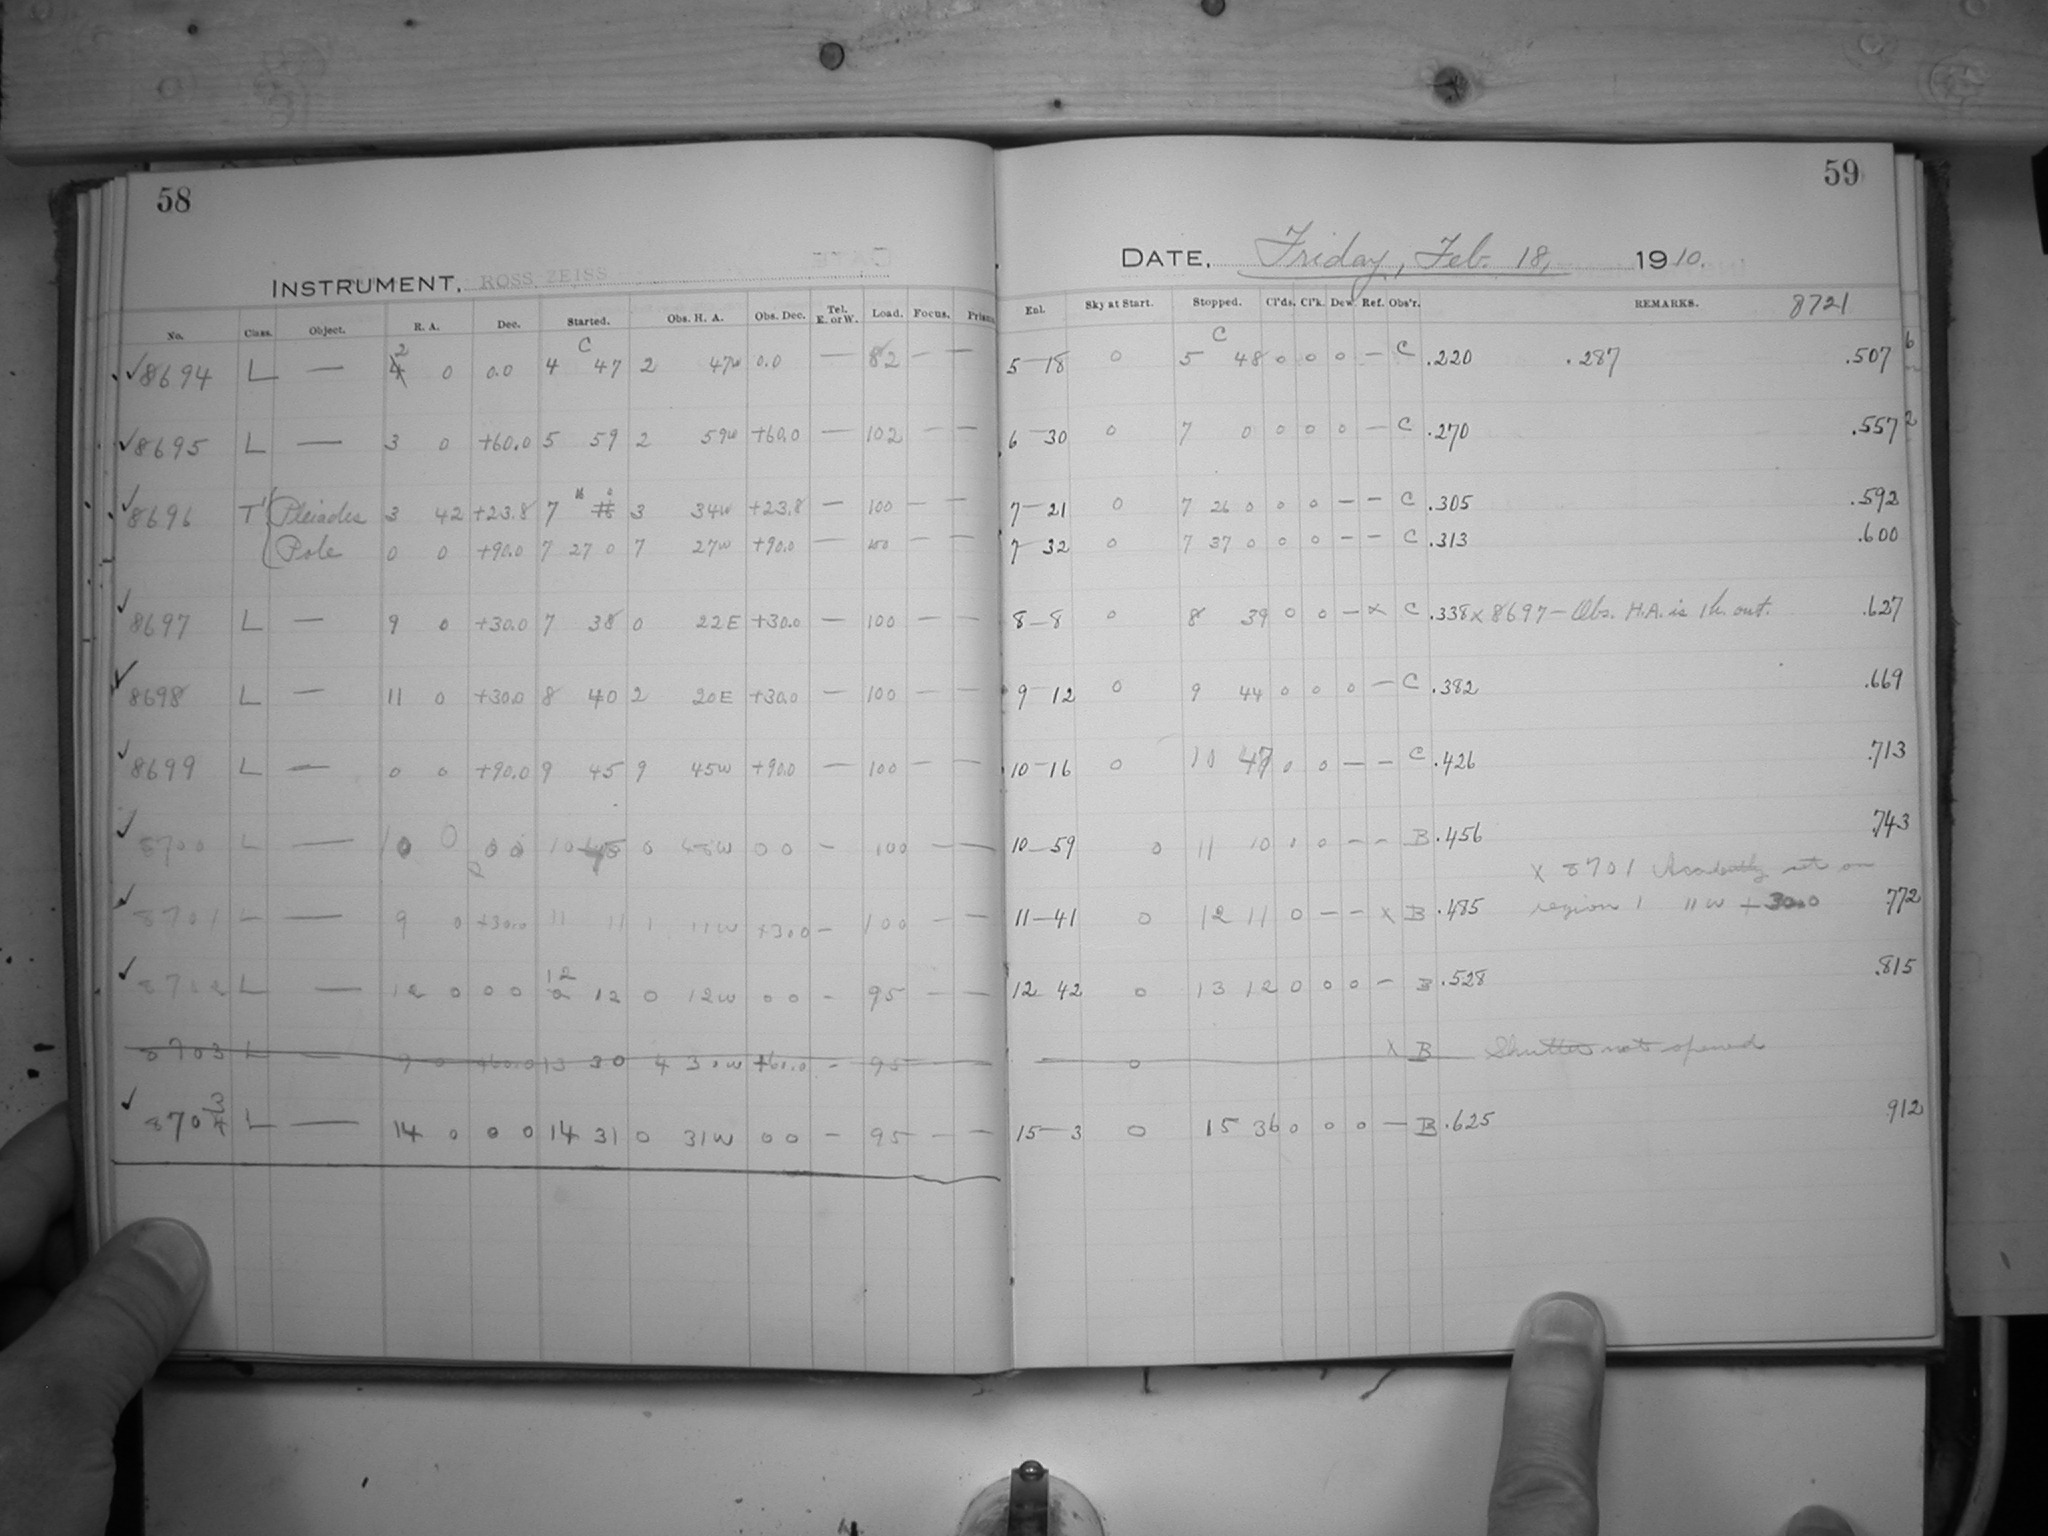 58
INSTRUMENT. ROSS ZEISS
No. Class. Object. R. A. Dec. Started. Obs. H. A. Obs. Dec. Tel. E. or W. Load. Focus. Prism
C
8694 L — 2 4 0 0.0 4 47 2 47w 0.0 — 82 — —
8695 L — 3 0 +60.0 5 59 2 59w +60.0 — 102 — —
8696 T' Pleiades 3 42 +23.8 7 16 3 34w +23.8 — 100 — —
Pole 0 0 +90.0 7 27 0 7 27w +90.0 — 100 — —
8697 L — 9 0 +30.0 7 38 0 22E +30.0 — 100 — —
8698 L — 11 0 +30.0 8 40 2 20E +30.0 — 100 — —
8699 L — 0 0 +90.0 9 45 9 45w +90.0 — 100 — —
8700 L — 10 0 0 0 10 48 0 48w 0 0 – 100 — —
8701 L — 9 0 +30.0 11 11 1 11w +30.0 – 100 — —
8702 L — 12 0 0 0 12 12 0 12w 0 0 – 95 — —
8703 L — 9 0 +60.0 13 30 4 30w +60.0 – 95 — —
8703 4 L — 14 0 0 0 14 31 0 31w 0 0 – 95 — —
59
DATE, Friday, Feb. 18, 1910.
Enl. Sky at Start. Stopped. Cl'ds. Cl'k. Dew. Ref. Obs'r. REMARKS. 8721
C
5—18 0 5 48 0 0 0 — C .220 .287 .507
6—30 0 7 0 0 0 0 — C .270 .557
7—21 0 7 26 0 0 0 — — C .305 .592
7—32 0 7 37 0 0 0 — — C .313 .600
8—8 0 8 39 0 0 — x C .338 x 8697 — Obs. H.A. is 1h. out. .627
9—12 0 9 44 0 0 0 — C .382 .669
10—16 0 10 47 0 0 — — C .426 .713
10—59 0 11 10 0 0 — — B .456 .743
x 8701 Accidentally set on
11—41 0 12 11 0 — — x B .485 region 1 11w +30.0 .772
12—42 0 13 12 0 0 0 — B .528 .815
0 x B Shutter not opened
15—3 0 15 36 0 0 0 — B .625 912